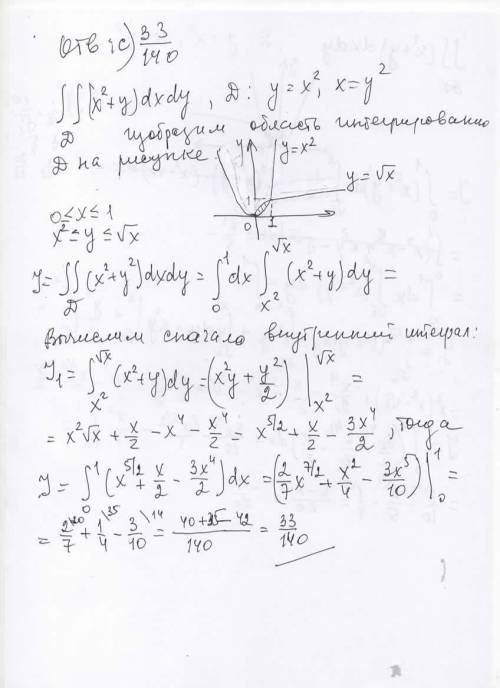 Отв: c) 33/140
∬ (x²+y)dxdy, D: y = x², x = y²
D изобразим область интегрированию
D на рисунке. y y=x²
y=√x
1
0 1
0 ≤ x ≤ 1
x² ≤ y ≤ √x
J = ∬_D (x²+y²)dxdy = ∫_0^1 dx ∫_{x²}^{√x} (x²+y)dy =
Вычислим сначала внутренний интеграл:
J₁ = ∫_{x²}^{√x} (x²+y)dy = (x²y + y²/2) |_{x²}^{√x} =
= x²√x + x/2 - x⁴ - x⁴/2 = x^{5/2} + x/2 - 3x⁴/2, тогда
J = ∫_0^1 (x^{5/2} + x/2 - 3x⁴/2) dx = (2/7 x^{7/2} + x²/4 - 3x⁵/10) |_0^1 =
= 2\20/7 + 1\35/4 - 3\14/10 = (40+35-42)/140 = 33/140